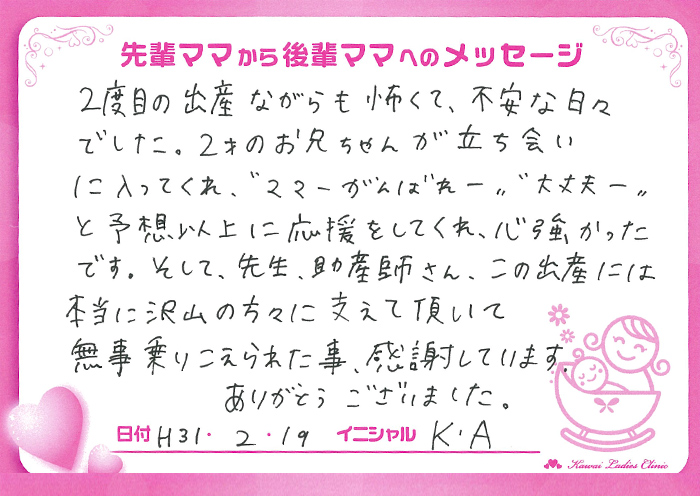 先輩ママから後輩ママへのメッセージ
2度目の出産ながらも怖くて、不安な日々
でした。2才のお兄ちゃんが立ち会い
に入ってくれ、〝ママーがんばれー〟〝大丈夫ー〟
と予想以上に応援をしてくれ、心強かった
です。そして、先生、助産師さん、この出産には
本当に沢山の方々に支えて頂いて
無事乗りこえられた事、感謝しています。
ありがとうございました。
日付 H31・2・19 イニシャル K・A
Kawai Ladies Clinic